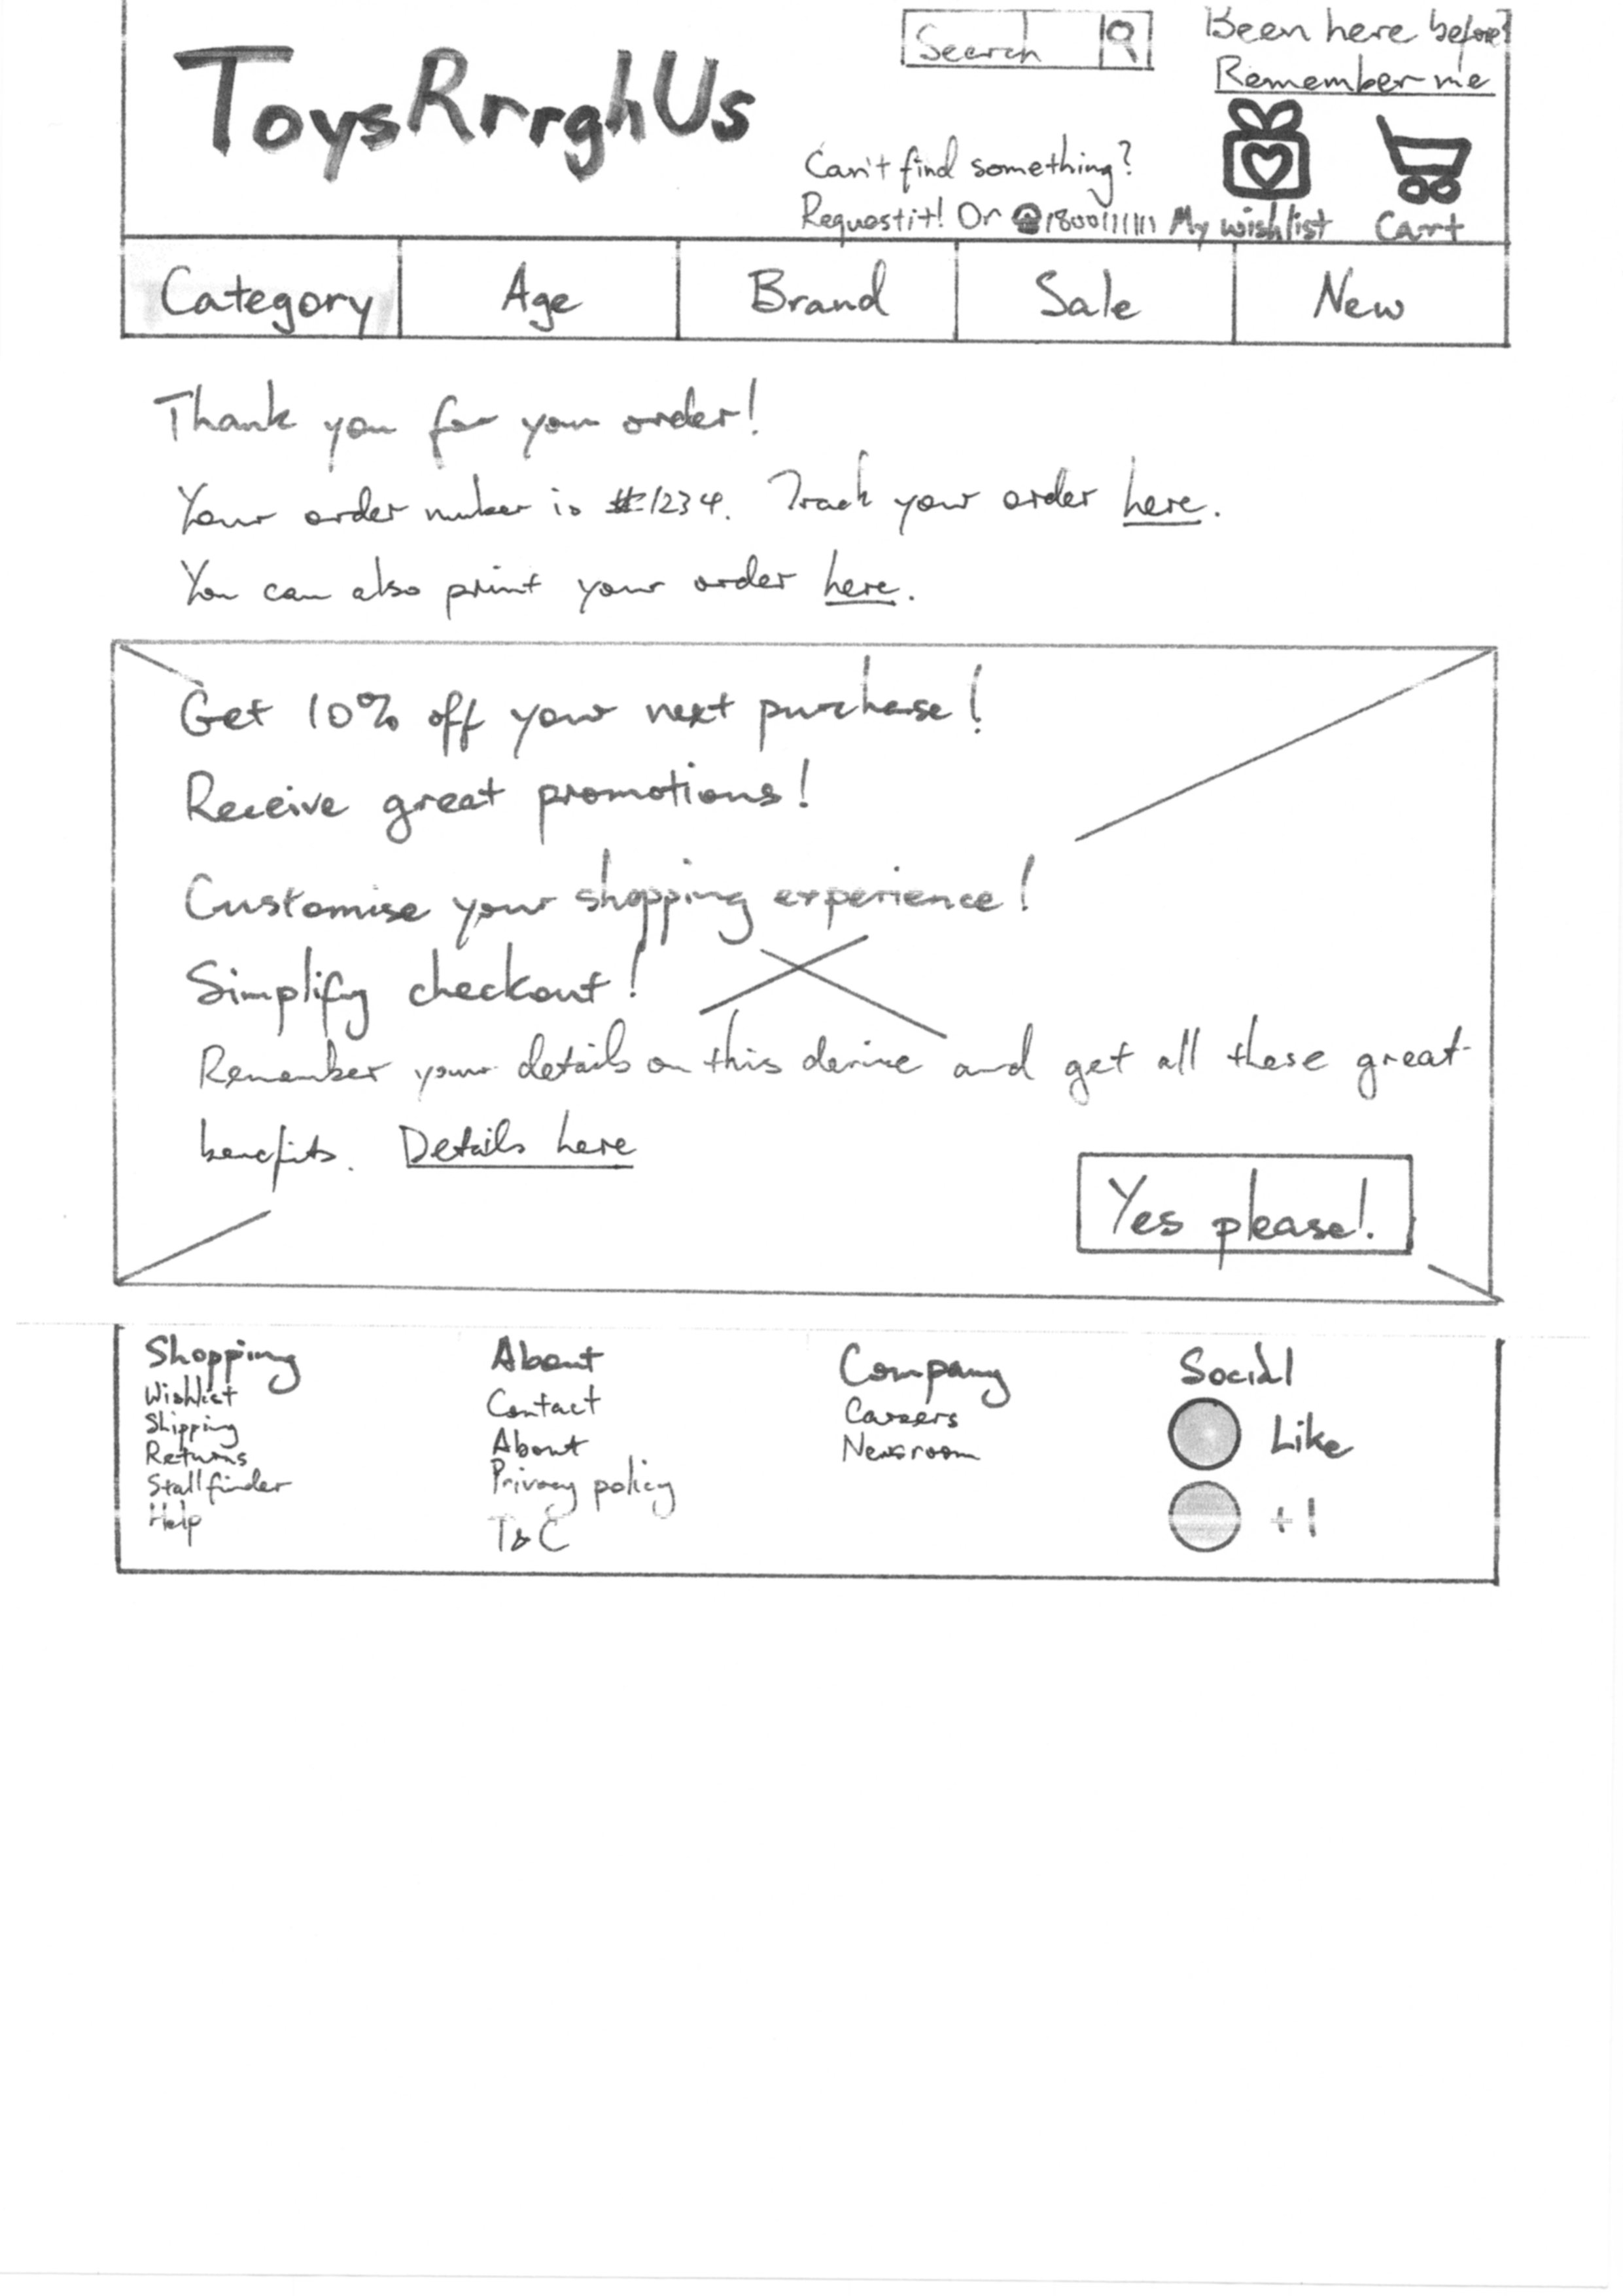 Search
Been here before?
Remember me
ToysRrrghUs
Can't find something?
Request it! Or ☎1800111111
My wishlist
Cart
Category
Age
Brand
Sale
New
Thank you for your order!
Your order number is #1234. Track your order here.
You can also print your order here.
Get 10% off your next purchase!
Receive great promotions!
Customise your shopping experience!
Simplify checkout!
Remember your details on this device and get all these great
benefits. Details here
Yes please!
Shopping
Wishlist
Shipping
Returns
Stall finder
Help
About
Contact
About
Privacy policy
T&C
Company
Careers
Newsroom
Social
Like
+1